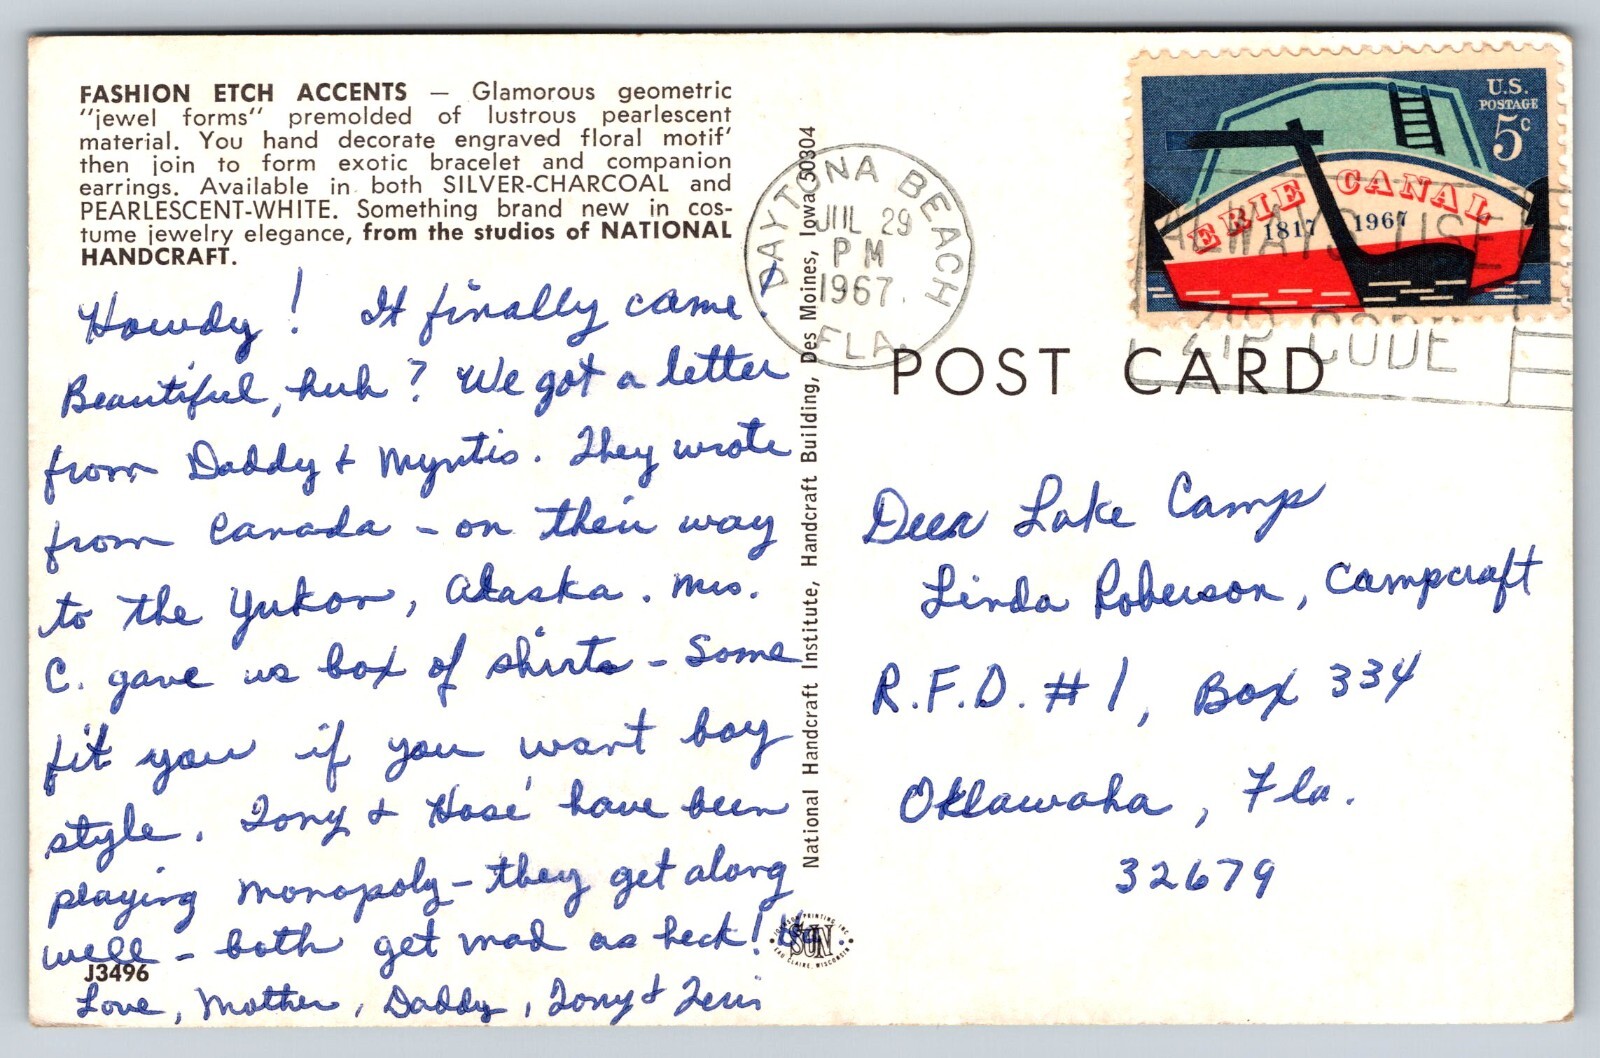 FASHION ETCH ACCENTS — Glamorous geometric
"jewel forms" premolded of lustrous pearlescent
material. You hand decorate engraved floral motif'
then join to form exotic bracelet and companion
earrings. Available in both SILVER-CHARCOAL and
PEARLESCENT-WHITE. Something brand new in cos-
tume jewelry elegance, from the studios of NATIONAL
HANDCRAFT.
Howdy! It finally came!
Beautiful, huh? We got a letter
from Daddy & Myrtis. They wrote
from Canada - on their way
to the Yukon, Alaska. Mrs.
C. gave us box of shirts - Some
fit you if you want boy
style. Tony & Hosé have been
playing monopoly - they get along
well - both get mad as heck! Ha.
J3496
Love, Mother, Daddy, Tony & Teri
National Handcraft Institute, Handcraft Building, Des Moines, Iowa 50304
JOHNSON PRINTING INC.
SUN
EAU CLAIRE, WISCONSIN
DAYTONA BEACH
JUL 29
PM
1967
FLA.
U.S.
POSTAGE
5c
ERIE CANAL
1817 1967
ALWAYS USE
ZIP CODE
POST CARD
Deer Lake Camp
Linda Roberson, Campcraft
R.F.D. #1, Box 334
Oklawaha, Fla.
32679